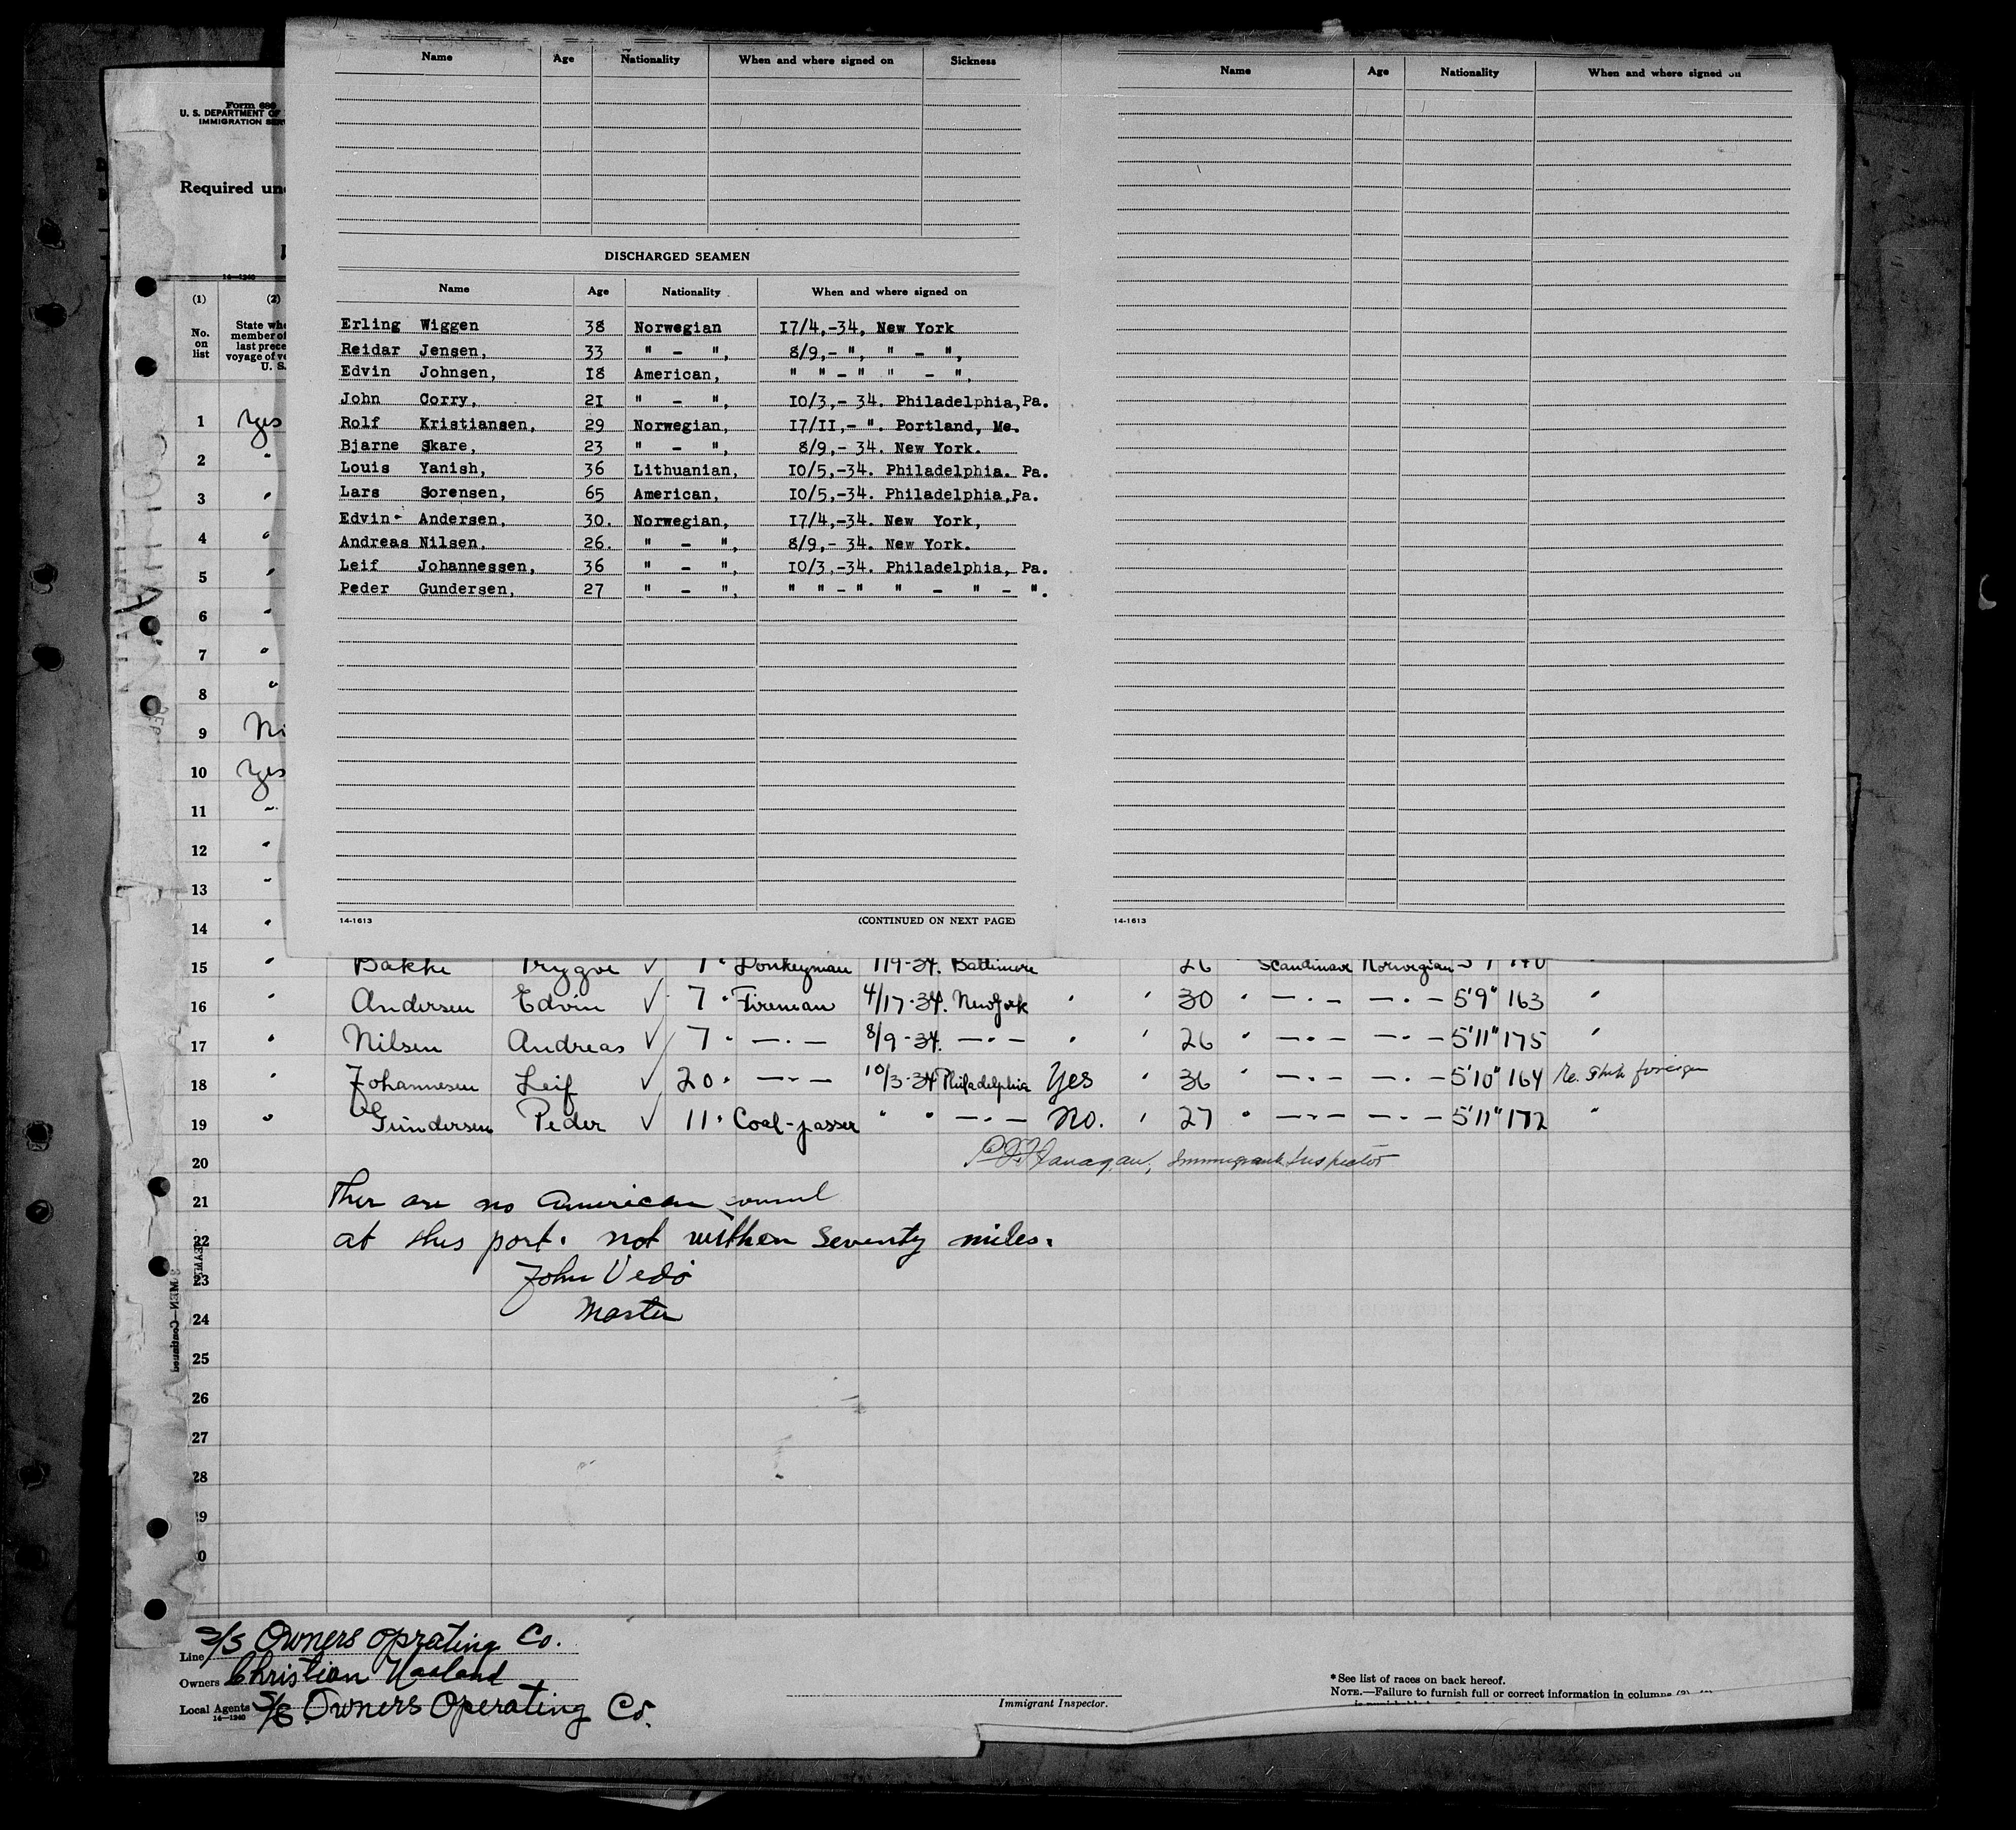 Name Age Nationality When and where signed on Sickness
DISCHARGED SEAMEN
Name Age Nationality When and where signed on
Erling Wiggen 38 Norwegian 17/4,-34, New York
Reidar Jensen, 33 " - ", 8/9,- ", " - ",
Edvin Johnsen, 18 American, " " - " " - ",
John Corry, 21 " - ", 10/3,- 34. Philadelphia, Pa.
Rolf Kristiansen, 29 Norwegian, 17/11,- ". Portland, Me.
Bjarne Skare, 23 " - ", 8/9,- 34. New York.
Louis Yanish, 36 Lithuanian, 10/5,-34. Philadelphia. Pa.
Lars Sorensen, 65 American, 10/5,-34. Philadelphia,Pa.
Edvin- Andersen, 30. Norwegian, 17/4,-34. New York,
Andreas Nilsen, 26. " - ", 8/9,- 34. New York.
Leif Johannessen, 36 " - ", 10/3,-34. Philadelphia, Pa.
Peder Gundersen, 27 " - ", " " - " " - " - ".
14-1613 (CONTINUED ON NEXT PAGE)
Name Age Nationality When and where signed on
14-1613
Form 680
U. S. DEPARTMENT OF
IMMIGRATION
Required
14-1240
(1) (2)
No. on list
State
member of
last
voyage of
U. S.
1 Yes
2 "
3 "
4 "
5 "
6 "
7 "
8 "
9
10 Yes
11 "
12 "
13 "
14 "
15 " Bakke Trygve ✓ 7 " Donkeyman 119-34. Baltimore 26 " Scandinave Norwegian 170
16 " Andersen Edvin ✓ 7 " Fireman 4/17-34. New York " " 30 " — " — — " — 5'9" 163 "
17 " Nilsen Andreas ✓ 7 " — " — 8/9-34. — " — " " 26 " — " — — " — 5'11" 175 "
18 " Johannesen Leif ✓ 20 " — " — 10/3-34 Philadelphia Yes " 36 " — " — — " — 5'10" 164 foreign
19 " Gundersen Peder ✓ 11 " Coal-passer " " — " — No. " 27 " — " — — " — 5'11" 172 "
20 Flanagan, Immigrant Inspector
21 Ther are no American consul
22 at this port. not withen Seventy miles.
23 John Vedö
24 Master
25
26
27
28
29
30
SEAMEN—Continued
Line S/S Owners Oprating Co.
Owners Christian Haaland
Local Agents S/S Owners Operating Co.
14—1240
Immigrant Inspector.
*See list of races on back hereof.
NOTE.—Failure to furnish full or correct information in columns